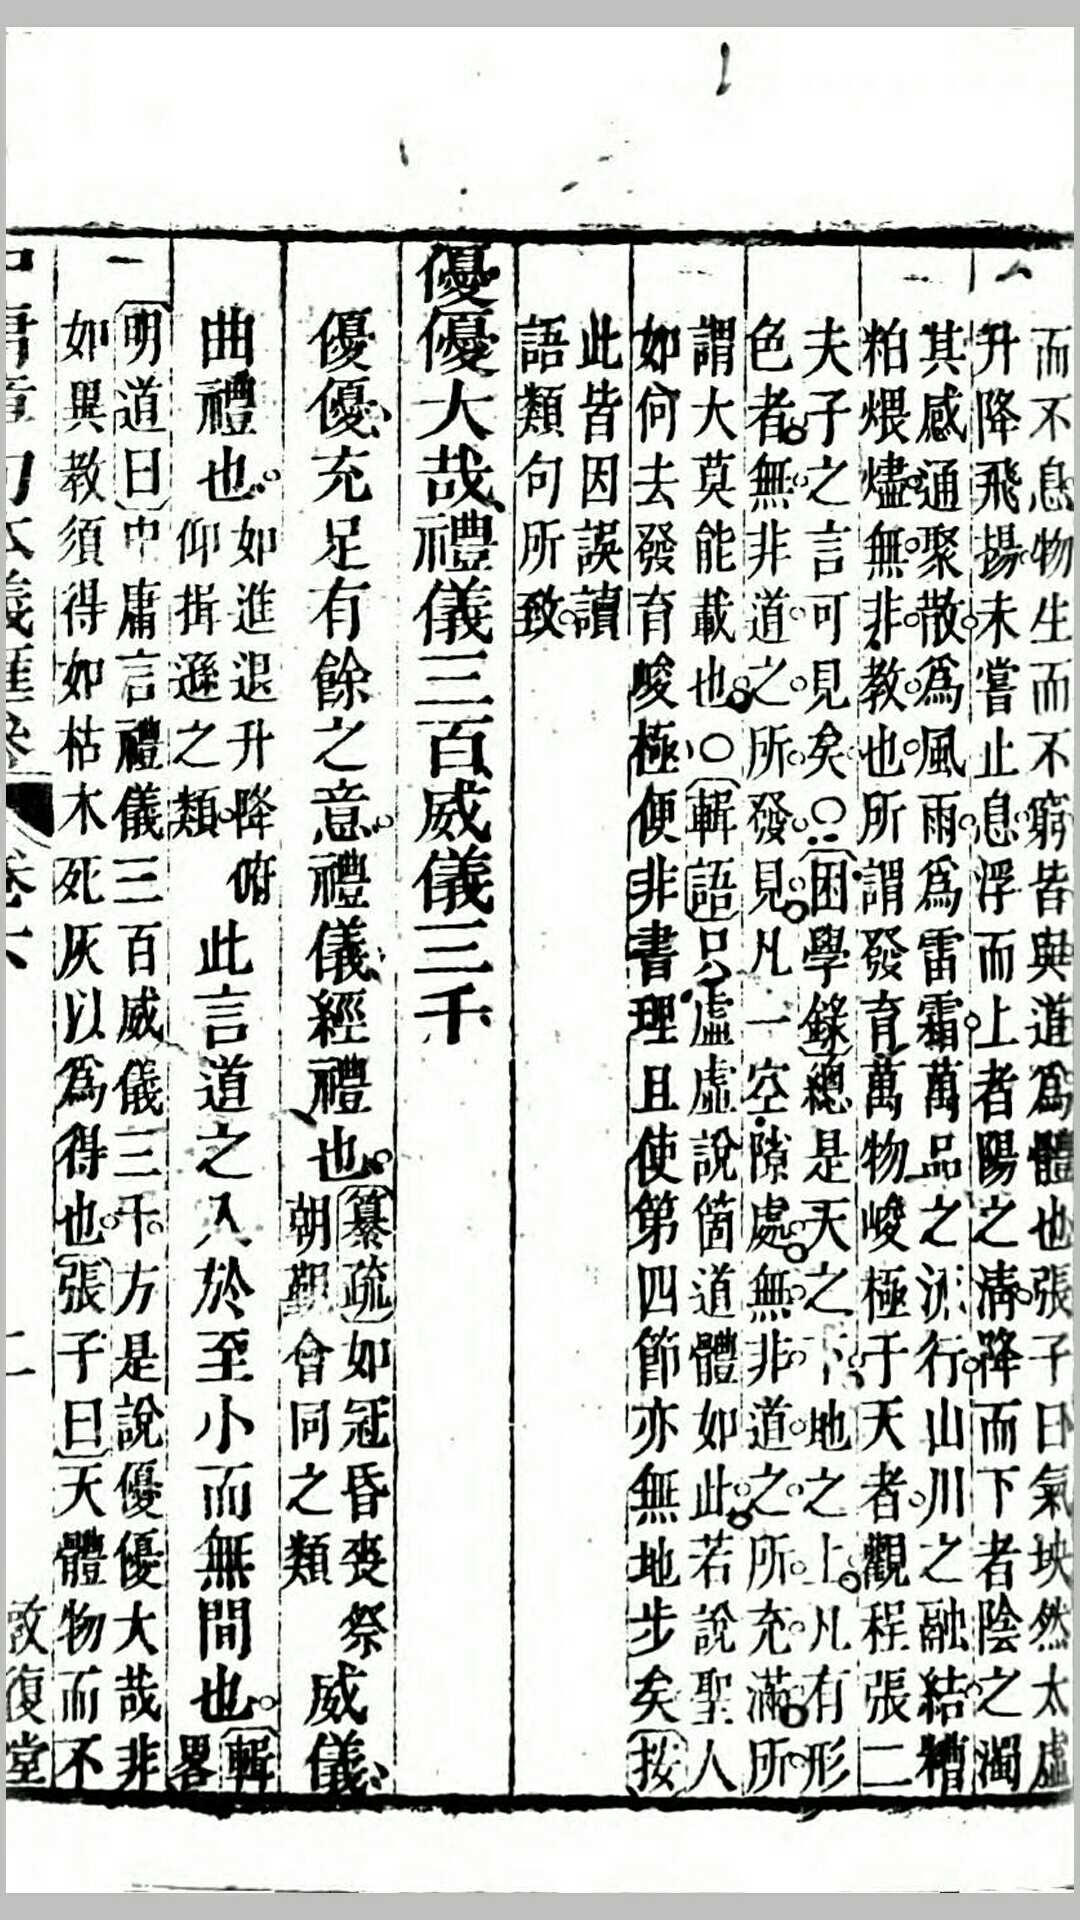 而不息物生而不窮皆與道爲體也張子曰氣坱然太虛
升降飛揚未嘗止息浮而上者陽之淸降而下者陰之濁
其感通聚散爲風雨爲雷霜萬品之流行山川之融結糟
粕煨燼無非教也所謂發育萬物峻極于天者觀程張二
夫子之言可見矣○困學錄總是天之下地之上凡有形
色者無非道之所發見凡一空隙處無非道之所充滿所
謂大莫能載也○輯語只虛虛說箇道體如此若說聖人
如何去發育峻極便非書理且使第四節亦無地步矣按
此皆因誤讀
語類句所致
優優大哉禮儀三百威儀三千
優優充足有餘之意禮儀經禮也纂疏如冠昏喪祭
朝覲會同之類威儀
曲禮也如進退升降俯
仰揖遜之類此言道之入於至小而無間也輯
畧
明道曰中庸言禮儀三百威儀三千方是說優優大哉非
如異教須得如枯木死灰以爲得也張子曰天體物而不
中庸章句本義匯參 卷六 二 敦復堂